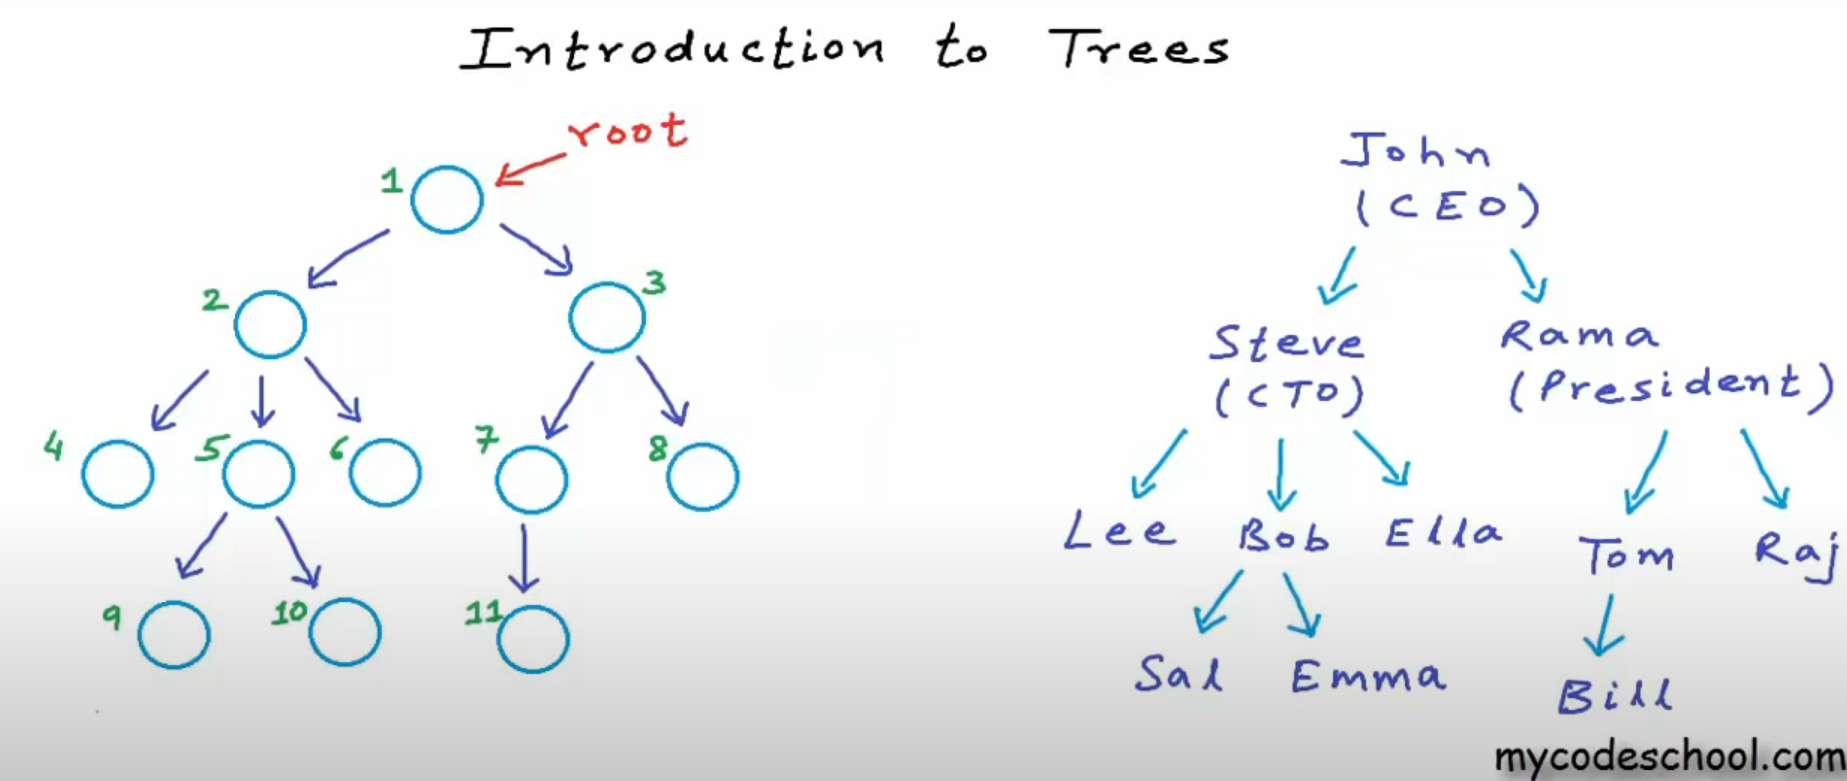 Introduction to Trees
root
1
2
3
4
5
6
7
8
9
10
11
John
(CEO)
Steve
(CTO)
Rama
(President)
Lee
Bob
Ella
Tom
Raj
Sal
Emma
Bill
mycodeschool.com